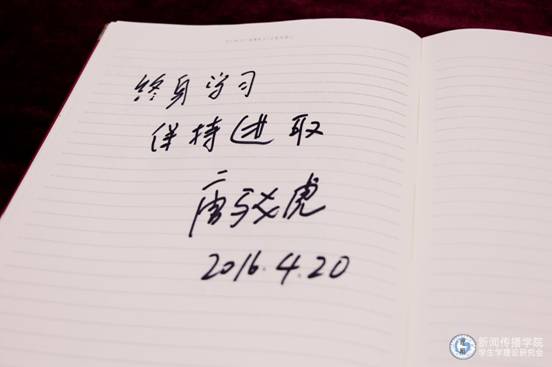 终身学习
保持进取
唐驳虎
2016.4.20
新闻传播学院
学生学理论研究会